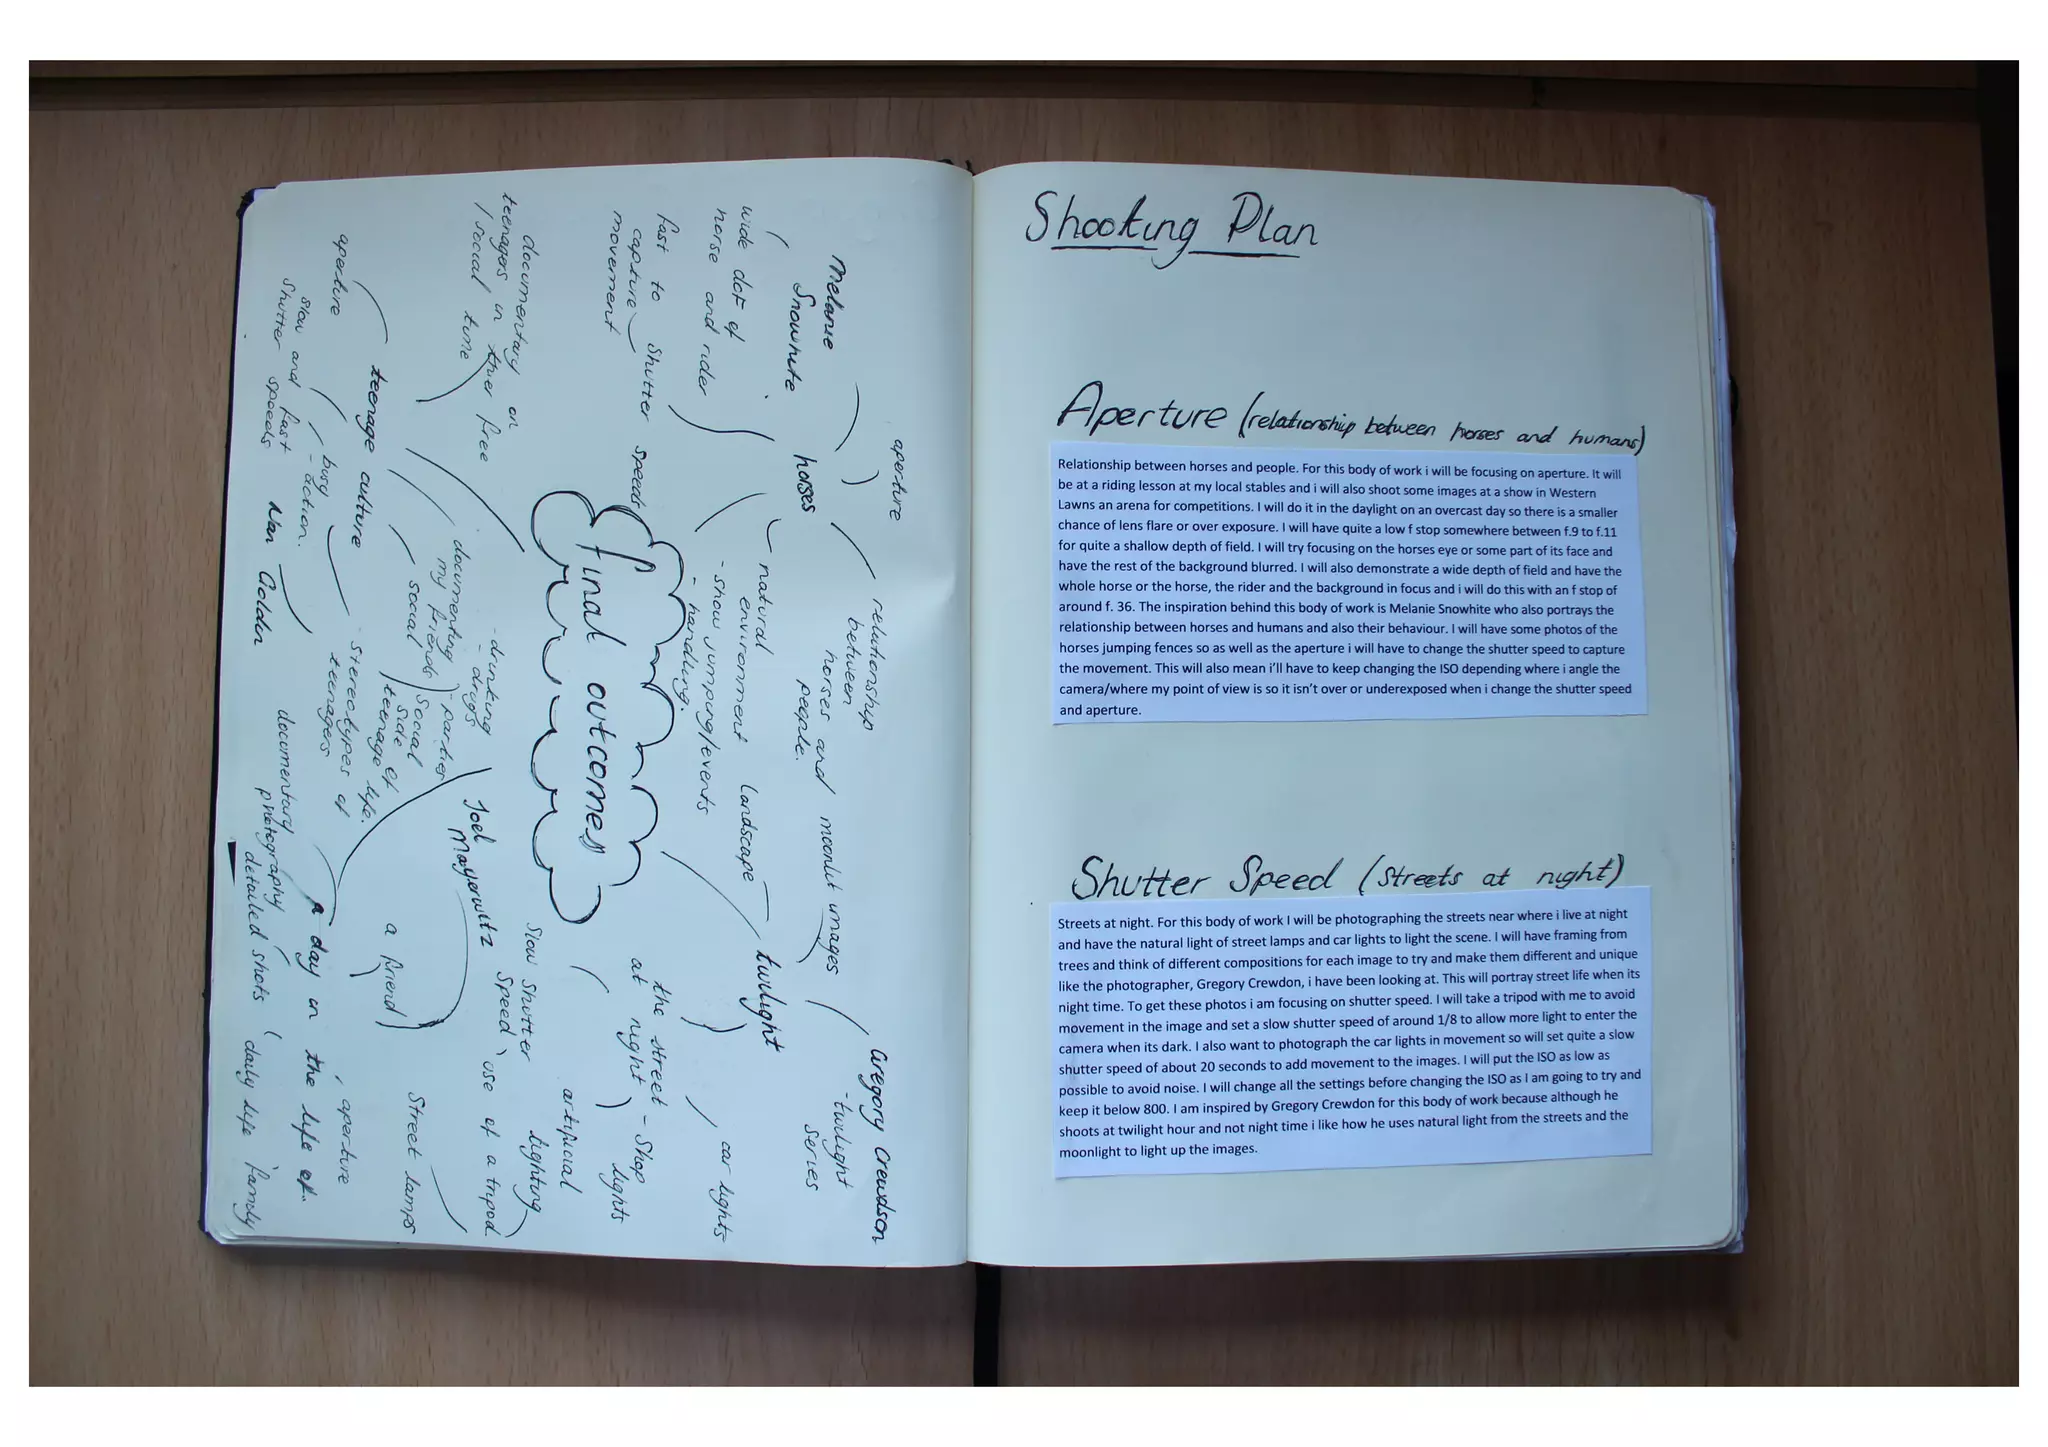 Melanie
Snowhite
wide dof of
horse and rider
fast to shutter speeds
capture
movement
horses
aperture
relationship
between
horses and
people.
natural
environment landscape
- show jumping/events
- handling.
moonlit images
twilight
Gregory Crewdson
- twilight
series
car lights
the street - shop
at night lights
artificial
lighting
slow shutter
speed
use of a tripod
street lamps
final outcomes
documentary on
teenagers in thier free
/ social time
teenage culture
aperture
slow and fast
shutter speeds
busy
- action.
Nan Goldin
- stereotypes of
teenagers
documenting
my friends
social
- drinking
- drugs
- parties
social
side of
teenage life.
Joel
Mayerowitz
documentary
photography
detailed shots
A day in the life of..
a friend
aperture
daily life family
Shooting Plan
Aperture (relationship between horses and humans)
Relationship between horses and people. For this body of work i will be focusing on aperture. It will
be at a riding lesson at my local stables and i will also shoot some images at a show in Western
Lawns an arena for competitions. I will do it in the daylight on an overcast day so there is a smaller
chance of lens flare or over exposure. I will have quite a low f stop somewhere between f.9 to f.11
for quite a shallow depth of field. I will try focusing on the horses eye or some part of its face and
have the rest of the background blurred. I will also demonstrate a wide depth of field and have the
whole horse or the horse, the rider and the background in focus and i will do this with an f stop of
around f. 36. The inspiration behind this body of work is Melanie Snowhite who also portrays the
relationship between horses and humans and also their behaviour. I will have some photos of the
horses jumping fences so as well as the aperture i will have to change the shutter speed to capture
the movement. This will also mean i'll have to keep changing the ISO depending where i angle the
camera/where my point of view is so it isn't over or underexposed when i change the shutter speed
and aperture.
Shutter Speed (Streets at night)
Streets at night. For this body of work I will be photographing the streets near where i live at night
and have the natural light of street lamps and car lights to light the scene. I will have framing from
trees and think of different compositions for each image to try and make them different and unique
like the photographer, Gregory Crewdon, i have been looking at. This will portray street life when its
night time. To get these photos i am focusing on shutter speed. I will take a tripod with me to avoid
movement in the image and set a slow shutter speed of around 1/8 to allow more light to enter the
camera when its dark. I also want to photograph the car lights in movement so will set quite a slow
shutter speed of about 20 seconds to add movement to the images. I will put the ISO as low as
possible to avoid noise. I will change all the settings before changing the ISO as I am going to try and
keep it below 800. I am inspired by Gregory Crewdon for this body of work because although he
shoots at twilight hour and not night time i like how he uses natural light from the streets and the
moonlight to light up the images.